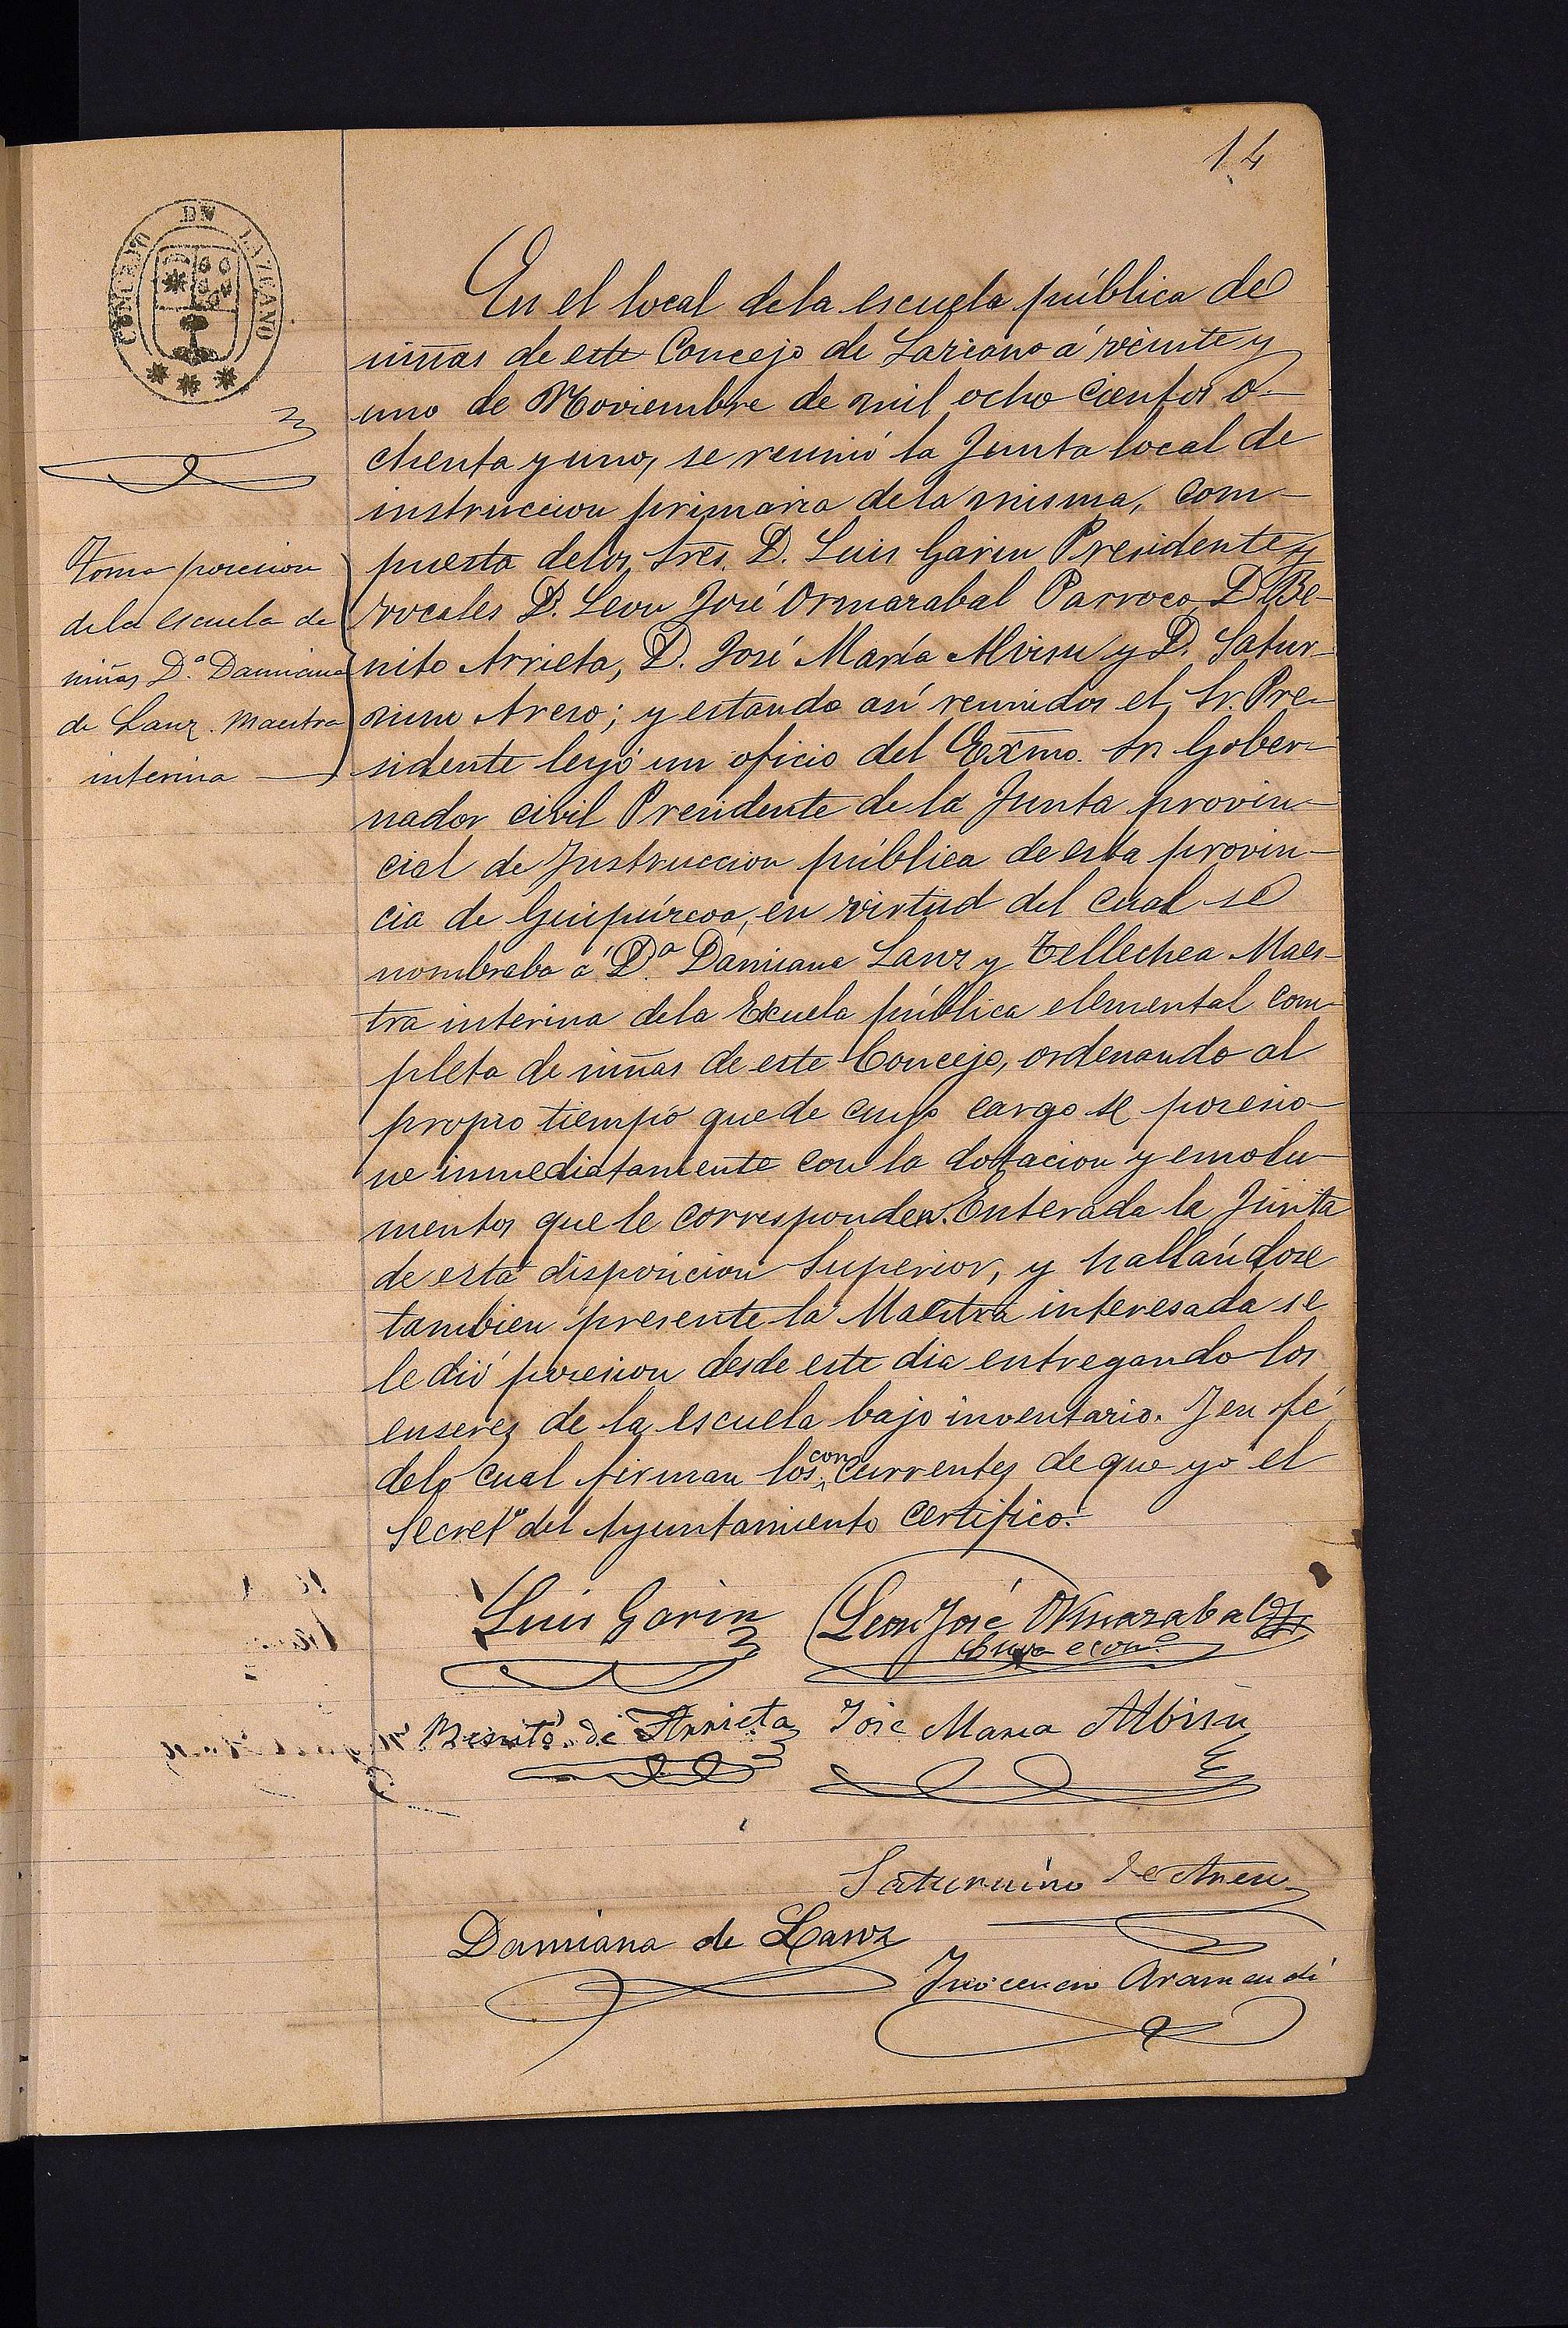 14
CONCEJO DE LAZCANO
En el local dela escuela pública de
niñas de este Concejo de Lazcano á veinte y
uno de Noviembre de mil ocho cientos o-
chenta y uno, se reunió la Junta local de
instruccion primaria dela misma, com-
puesta delos Sres. D. Luis Garin Presidente y
vocales D. Leon José Ormazabal Parroco, D. Be-
nito Arrieta, D. José María Alvisu y D. Satur-
nino Areso; y estando así reunidos el Sr. Pre-
sidente leyó un oficio del Exmo. Sr. Gober-
nador civil Presidente de la Junta provin-
cial de Instruccion pública de esta provin-
cia de Guipúzcoa, en virtud del cual se
nombraba á Dª Damiana Lanz y Tellechea Maes-
tra interina dela Escuela pública elemental com-
pleta de niñas de este Concejo, ordenando al
propio tiempo que de cuyo cargo se posesio-
ne inmediatamente con la dotacion y emolu-
mentos que le corresponden. Enterada la Junta
de esta disposicion Superior, y hallándose
tambien presente la Maestra interesada se
le dió posesion desde este dia entregando los
enseres de la escuela bajo inventario. Y en fé
delo cual firman los concurrentes de que yo el
Secretº del Ayuntamiento certifico.
Toma posesion
dela escuela de
niñas Dª Damiana
de Lanz. Maestra
interina
Luis Garin
Leon José Ormazabal
Cura econº
Benito de Arrieta
José Maria Albisu
Saturnino de Aresu
Damiana de Lanz
Inocencio Aramendi